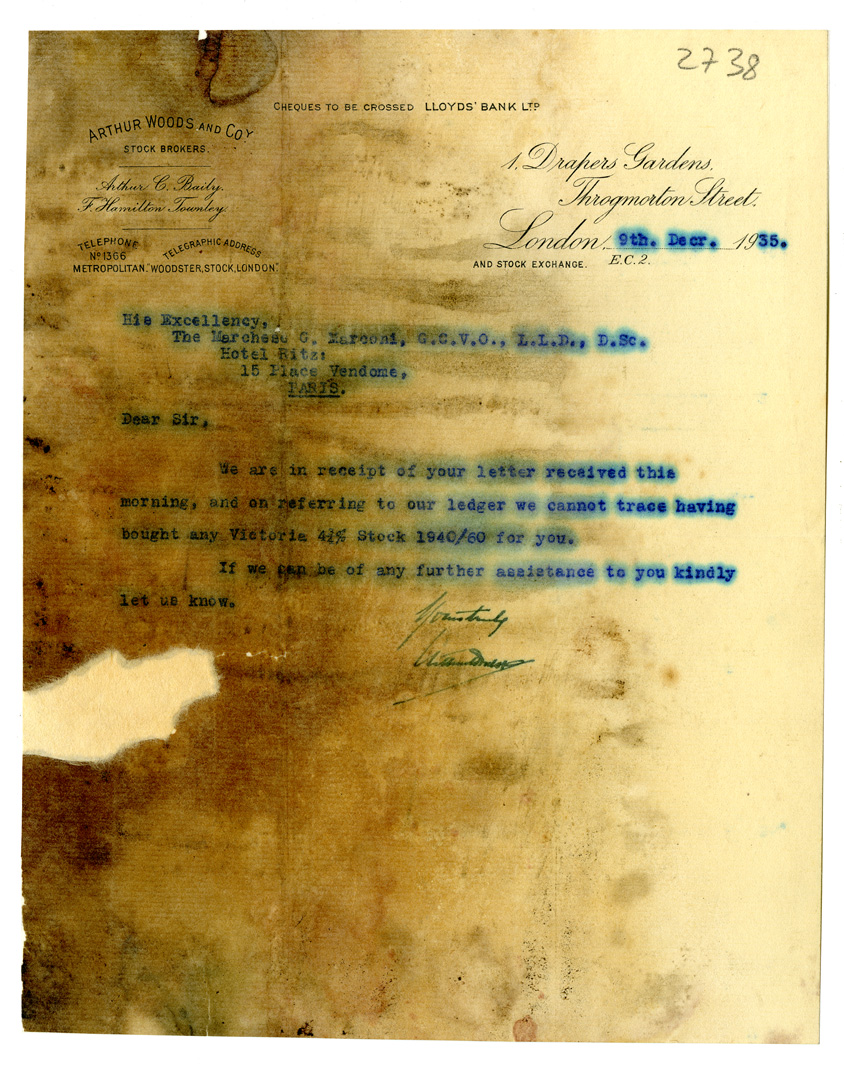 2738
CHEQUES TO BE CROSSED LLOYDS' BANK LTD
ARTHUR WOODS AND COY
STOCK BROKERS.
Arthur C. Baily.
F. Hamilton Townley.
TELEPHONE
No 1366
METROPOLITAN.
TELEGRAPHIC ADDRESS
"WOODSTER, STOCK, LONDON."
1, Drapers Gardens,
Throgmorton Street.
London, 9th. Decr. 1935.
E.C.2.
AND STOCK EXCHANGE.
His Excellency,
The Marchese G. Marconi, G.C.V.O., L.L.D., D.Sc.
Hotel Ritz:
15 Place Vendome,
PARIS.
Dear Sir,
We are in receipt of your letter received this
morning, and on referring to our ledger we cannot trace having
bought any Victoria Stock 1940/60 for you.
If we can be of any further assistance to you kindly
let us know.
Yours truly